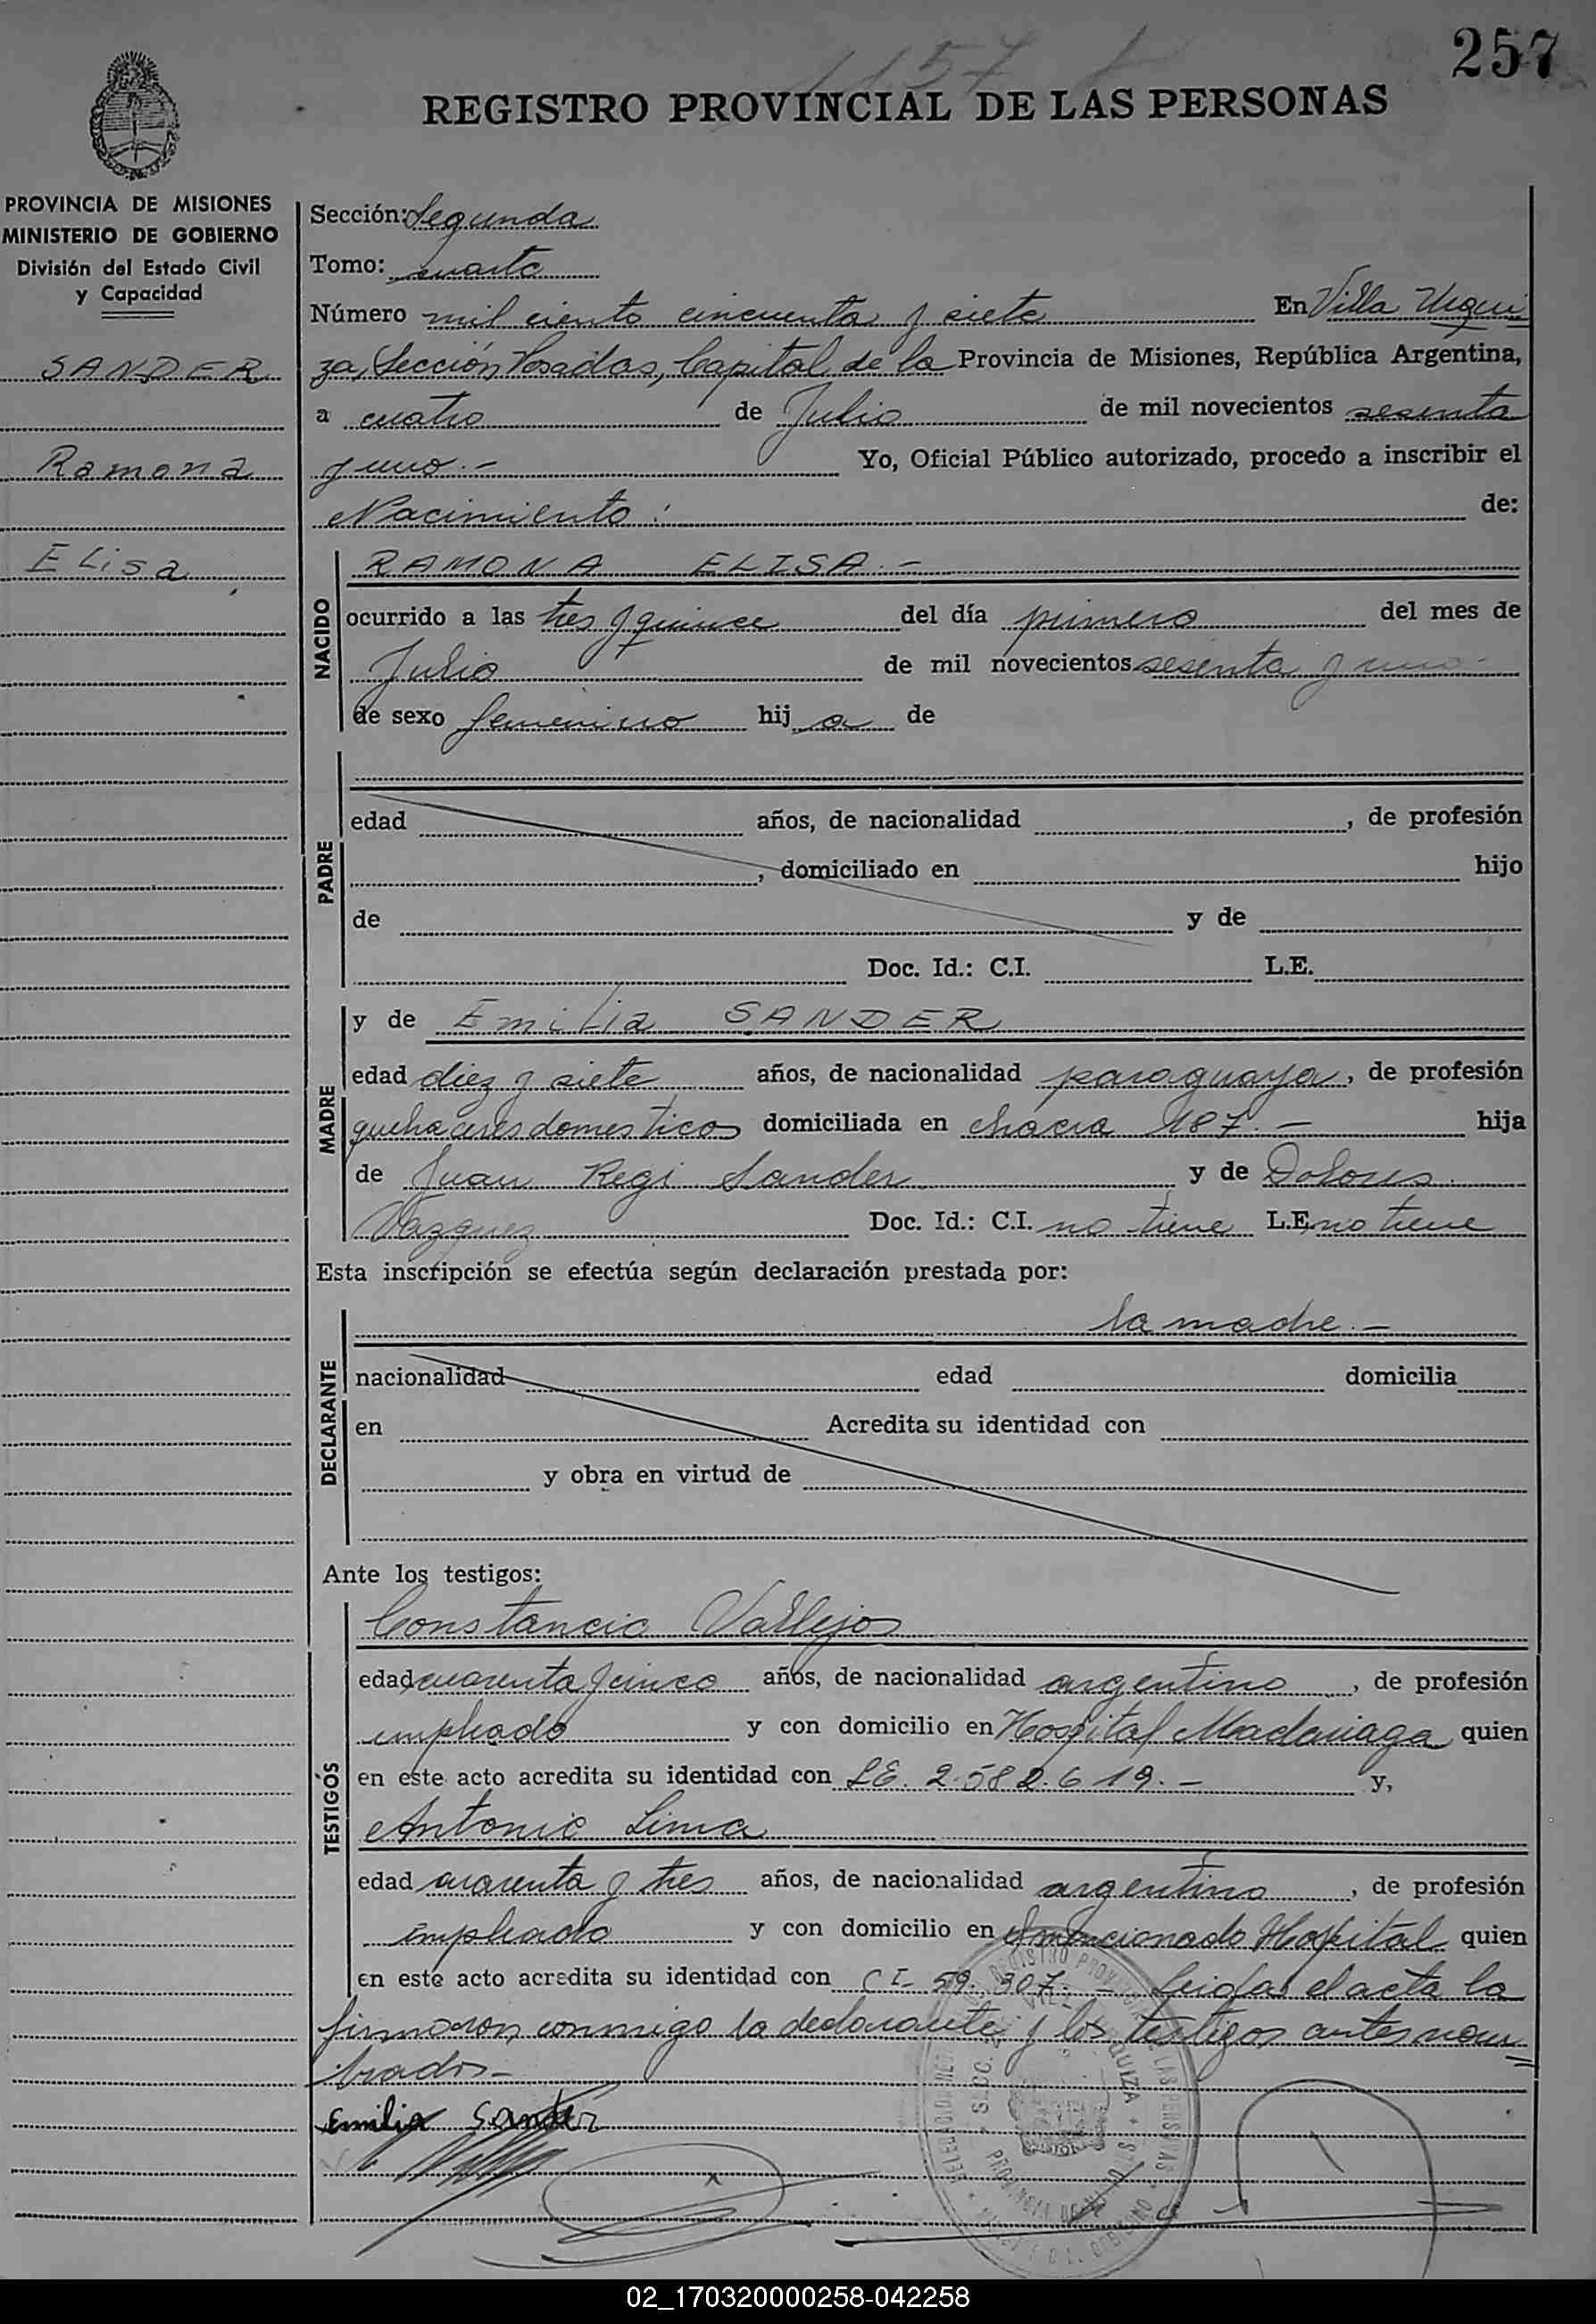 257
1157
REGISTRO PROVINCIAL DE LAS PERSONAS
PROVINCIA DE MISIONES
MINISTERIO DE GOBIERNO
División del Estado Civil
y Capacidad
SANDER
Ramona
Elisa
Sección: Segunda
Tomo: cuarto
Número mil ciento cincuenta y siete En Villa Urqui
za, Sección Posadas, Capital de la Provincia de Misiones, República Argentina,
a cuatro de Julio de mil novecientos sesenta
y uno.- Yo, Oficial Público autorizado, procedo a inscribir el
Nacimiento: de:
NACIDO
RAMONA ELISA.-
ocurrido a las tres y quince del día primero del mes de
Julio de mil novecientos sesenta y uno-
de sexo femenino hij a de
PADRE
edad años, de nacionalidad , de profesión
, domiciliado en hijo
de y de
Doc. Id.: C.I. L.E.
MADRE
y de Emilia SANDER
edad diez y siete años, de nacionalidad paraguaya, de profesión
quehaceres domesticos domiciliada en chacra 187.- hija
de Juan Regi Sander y de Dolores
Vazquez Doc. Id.: C.I. no tiene L.E. no tiene
Esta inscripción se efectúa según declaración prestada por:
DECLARANTE
la madre.-
nacionalidad edad domicilia
en Acredita su identidad con
y obra en virtud de
Ante los testigos:
TESTIGOS
Constancio Vallejos
edad cuarenta y cinco años, de nacionalidad argentino, de profesión
empleado y con domicilio en Hospital Madariaga quien
en este acto acredita su identidad con LE. 2.582.619.- y,
Antonio Lima
edad cuarenta y tres años, de nacionalidad argentino, de profesión
empleado y con domicilio en el mencionado Hospital quien
en este acto acredita su identidad con CI- 59.307- Leida el acta la
firmaron conmigo la declarante y los testigos antes nom
brados-
Emilia Sander
02_170320000258-042258